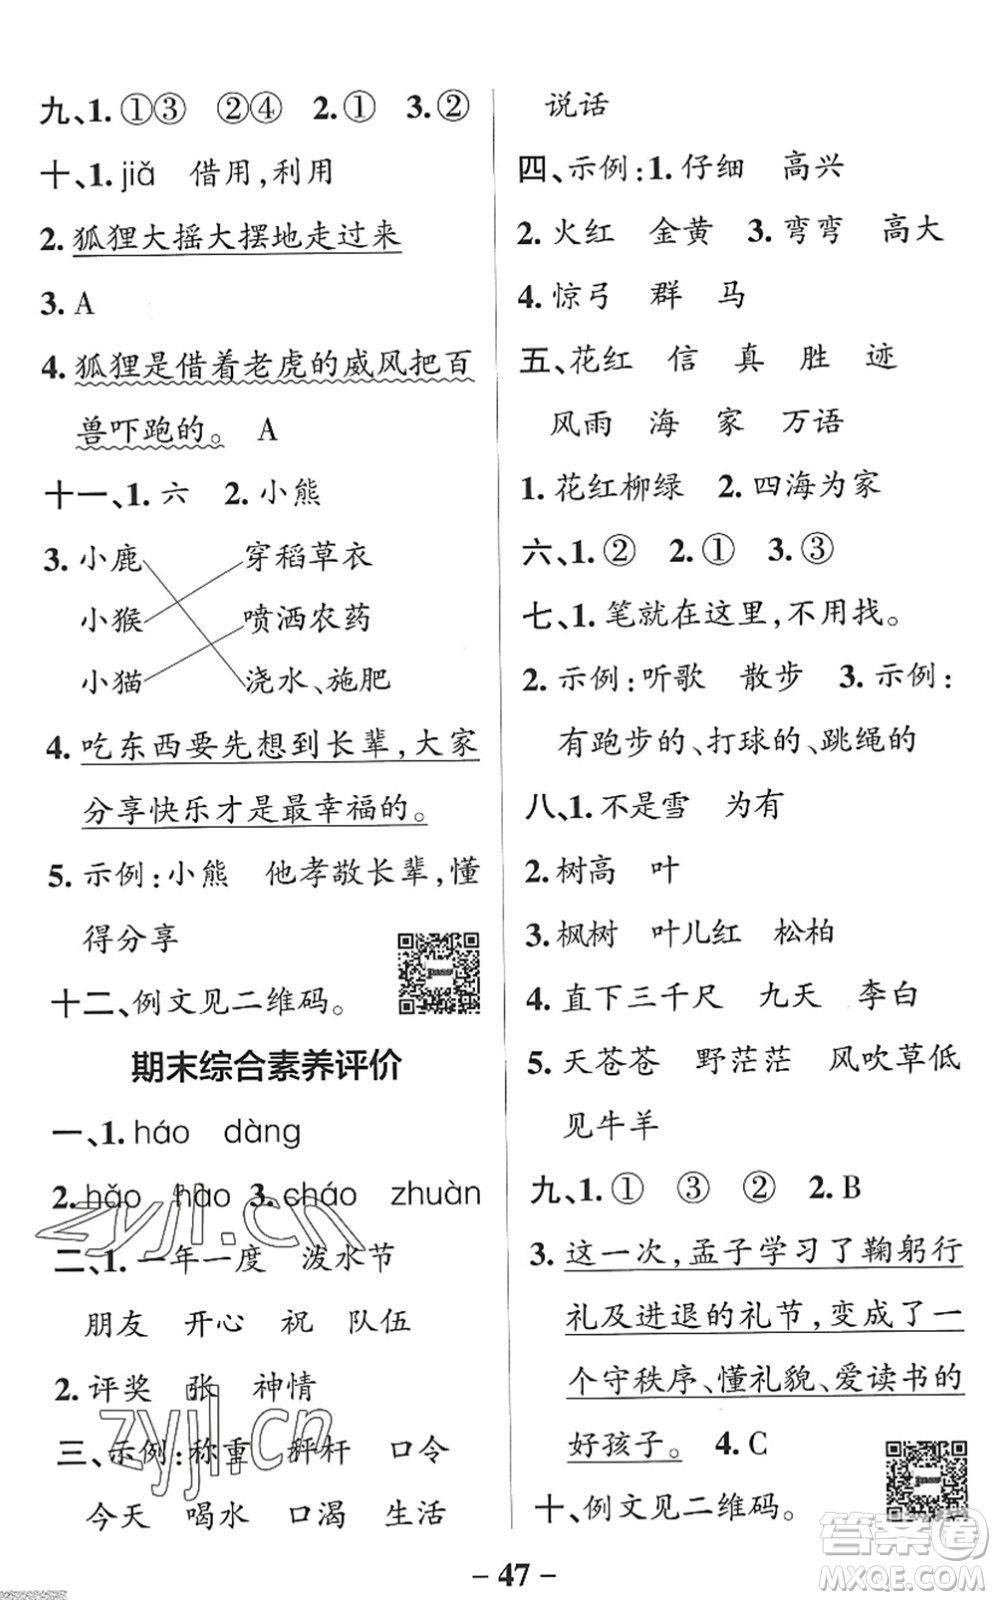 九、1.①③ ②④ 2.① 3.②
十、1.jiǎ 借用,利用
2.狐狸大摇大摆地走过来
3. A
4.狐狸是借着老虎的威风把百
兽吓跑的。 A
十一、1.六 2.小熊
3.小鹿 穿稻草衣
小猴 喷洒农药
小猫 浇水、施肥
4.吃东西要先想到长辈,大家
分享快乐才是最幸福的。
5.示例:小熊 他孝敬长辈,懂
得分享
十二、例文见二维码。
期末综合素养评价
一、1.háo dàng
2.hǎo hào 3.cháo zhuàn
二、1.一年一度 泼水节
朋友 开心 祝 队伍
2.评奖 张 神情
三、示例:称重 秤杆 口令
今天 喝水 口渴 生活
说话
四、示例:1.仔细 高兴
2.火红 金黄 3.弯弯 高大
4.惊弓 群 马
五、花红 信 真 胜 迹
风雨 海 家 万语
1.花红柳绿 2.四海为家
六、1.② 2.① 3.③
七、1.笔就在这里,不用找。
2.示例:听歌 散步 3.示例:
有跑步的、打球的、跳绳的
八、1.不是雪 为有
2.树高 叶
3.枫树 叶儿红 松柏
4.直下三千尺 九天 李白
5.天苍苍 野茫茫 风吹草低
见牛羊
九、1.① ③ ② 2.B
3.这一次,孟子学习了鞠躬行
礼及进退的礼节,变成了一
个守秩序、懂礼貌、爱读书的
好孩子。 4.C
十、例文见二维码。
- 47 -
zyjl.cn
zyjl.cn
答案圈
MXQE.COM